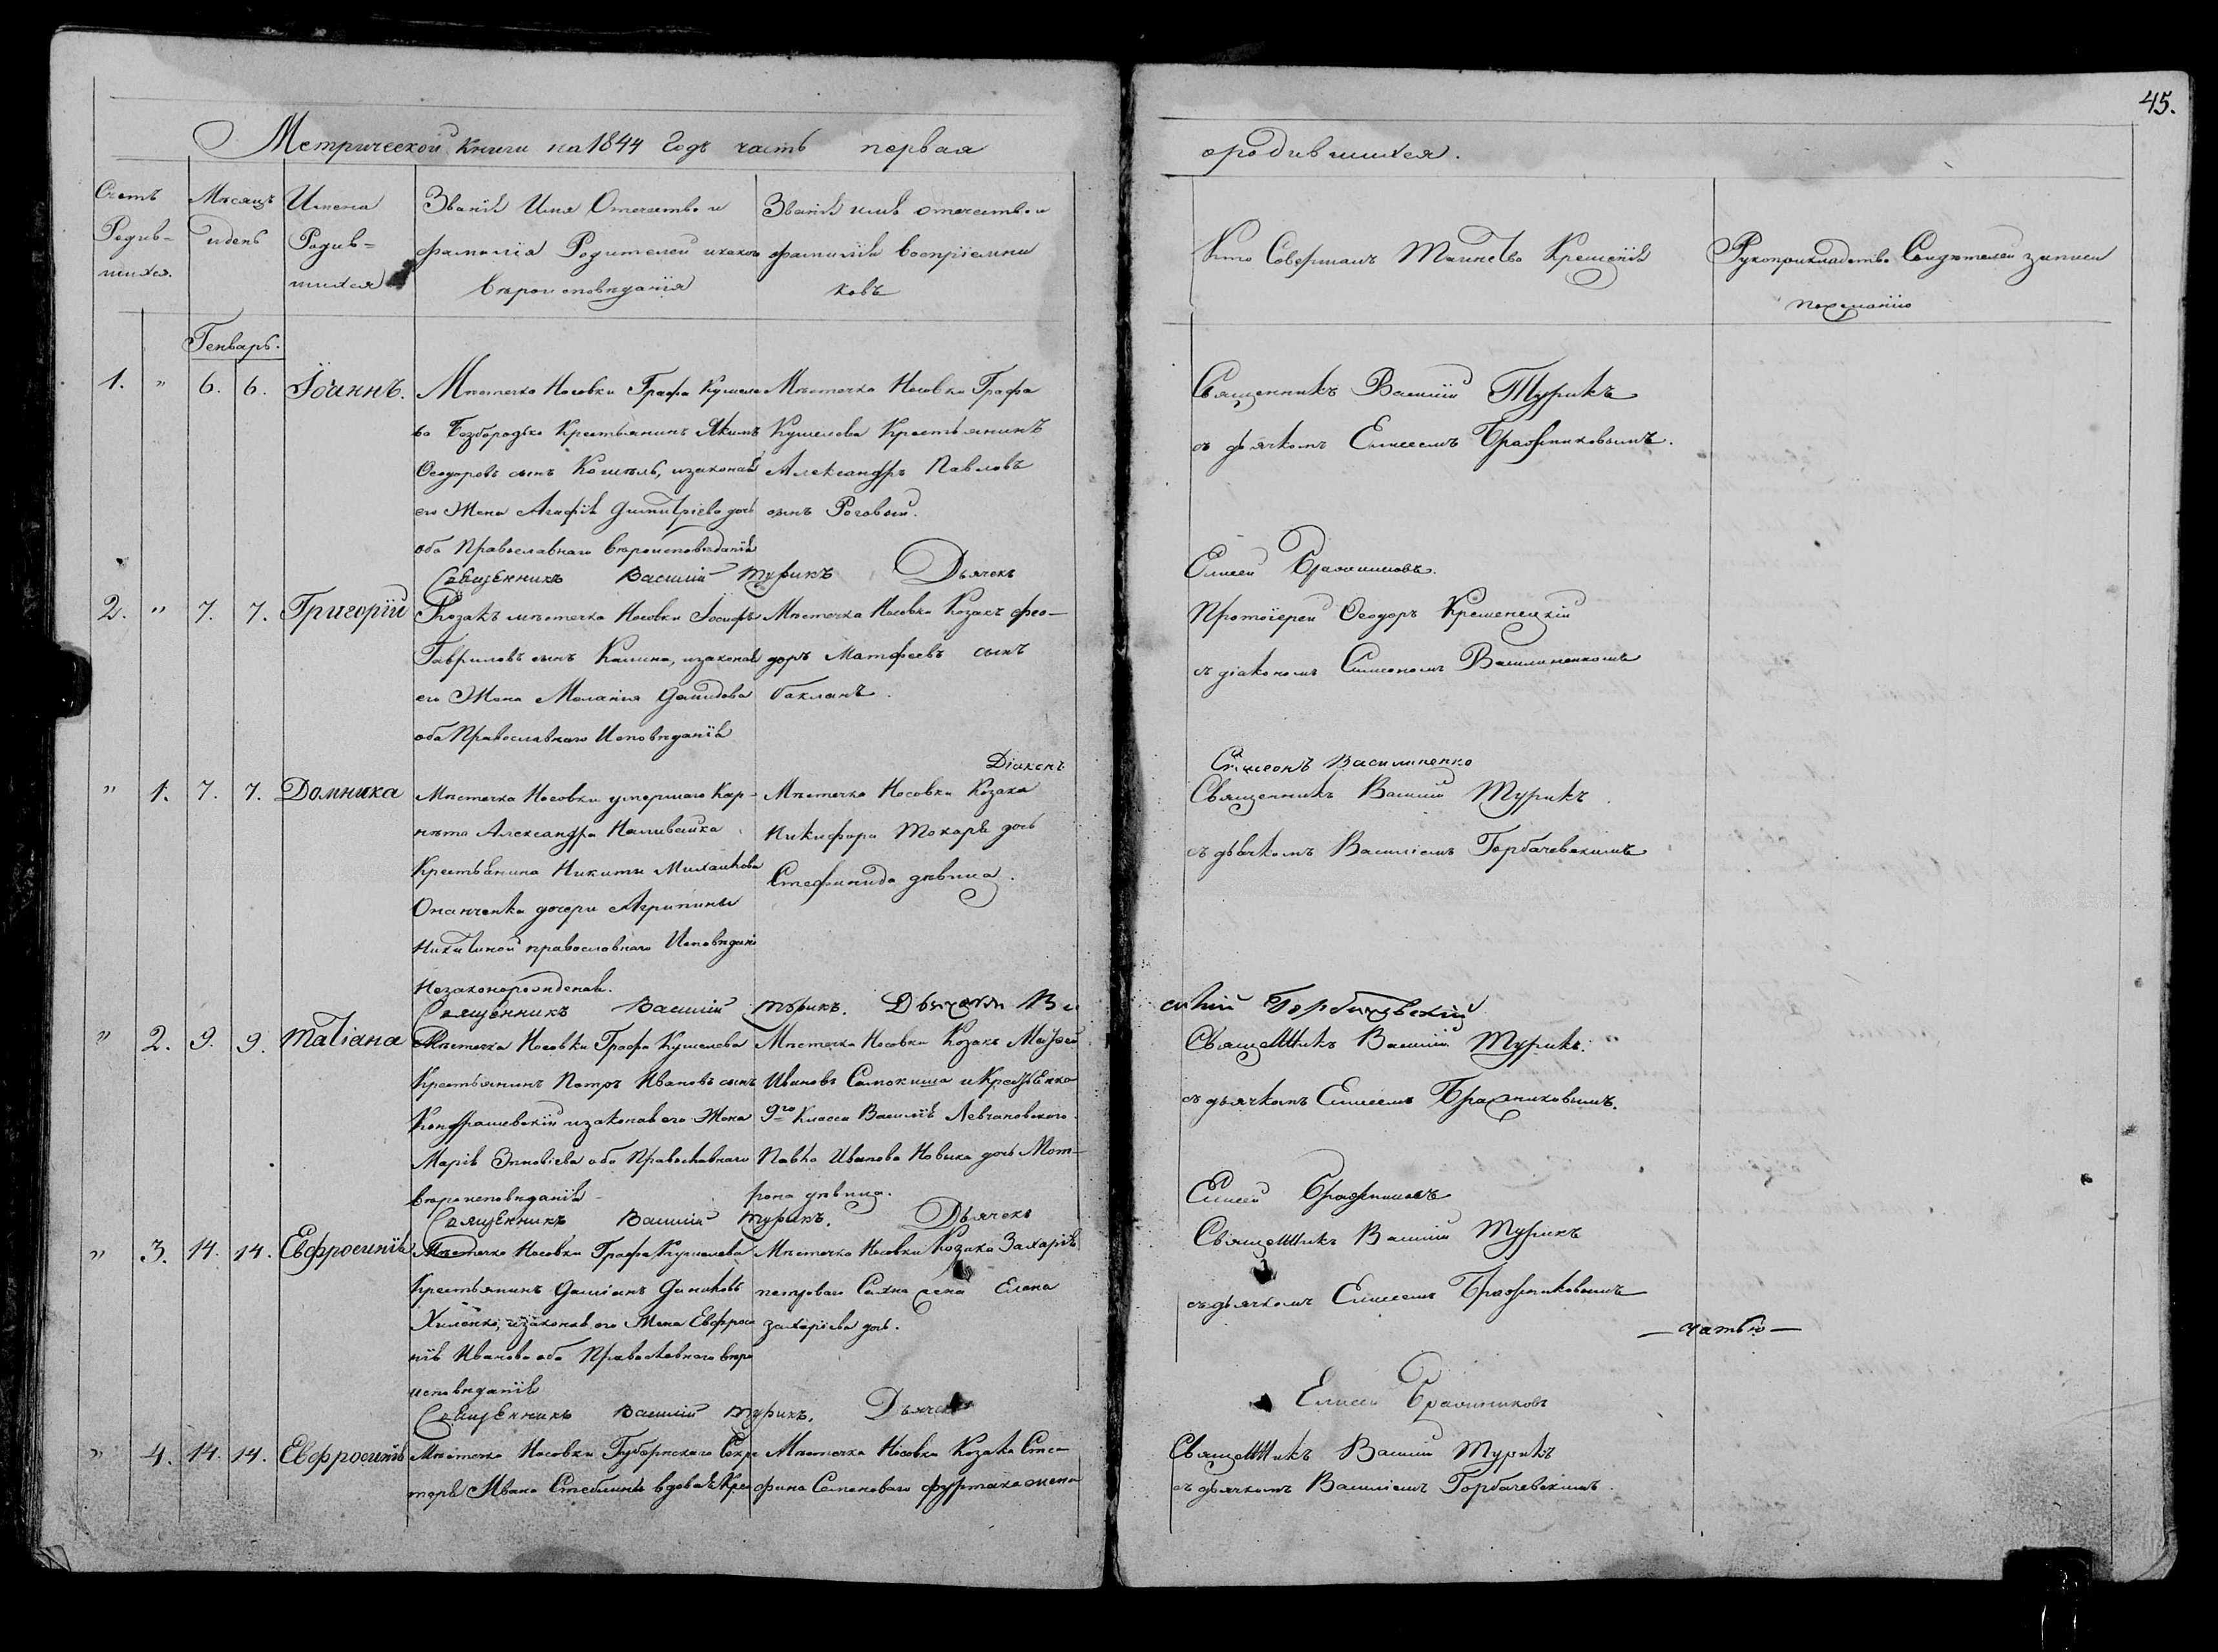 45.
Метрической книги на 1844 Годъ часть первая
о родившихся.
Счетъ Родив=шихся.
Мѣсяцъ и день
Имена Родив=шихся
Званіе Имя Отечество и
фамилія Родителей и какого
вѣроисповѣданія
Званіе имя отечество и
фамилія воспріемни
ковъ
Кто Совершалъ Таинство Крещенія
Рукоприкладство Свидѣтелей записи
по желанію
Генварь.
1. " 6. 6. Іоаннъ.
Мѣстечка Носовки Графа Кушеле
ва Безбородка Крестьянинъ Якимъ
Ѳеодоровъ сынъ Кошель, и законая
его Жена Агафія Димитріева дочь
оба Православнаго вѣроисповѣданія
Мѣстечка Носовки Графа
Кушелева Крестьянинъ
Александръ Павловъ
сынъ Роговый.
Священникъ Василій Турикъ
съ дьячкомъ Елисеемъ Бражниковымъ.
Священникъ Василій Турикъ Дьячекъ
Елисей Бражниковъ.
2. " 7. 7. Григорій
Козакъ мѣстечка Носовки Іосифъ
Гавриловъ сынъ Калина, и законая
его Жена Меланія Демидова
оба Православнаго Исповѣданія
Мѣстечка Носовки Козакъ Фео—
доръ Матфеевъ сынъ
бакланъ.
Протоіерей Ѳеодоръ Кременецкій
съ діакономъ Симеономъ Василиненкомъ
Діаконъ
Симеонъ Василиненко
" 1. 7. 7. Домника
Мѣстечка Носовки умершаго Кор-
нета Александра Наливайка
Крестьянина Никиты Михайлова
Онанченка дочери Агрипины
Никитиной православнаго Исповѣдані
Незаконорожденая.
Мѣстечка Носовки Козака
Никифора Токаря дочь
Стефанида дѣвица.
Священникъ Василій Турикъ
съ дьячкомъ Василіемъ Горбачевскимъ
Священникъ Василій Турикъ. Дьячокъ Ва
силій Горбачевскій
" 2. 9. 9. Татіана
Мѣстечка Носовки Графа Кушелева
Крестьянинъ Петръ Ивановъ сынъ
Кондрашевскій и законая его Жена
Марія Зиновіева оба Православнаго
вѣроисповѣданія
Мѣстечка Носовки Козакъ
Ивановъ Самокиша и Крестьянка
9го Класса Василія Левчановского
Павла Иванова Новика дочь Мот—
рона дѣвица.
Священникъ Василій Турикъ.
съ дьячкомъ Елисеемъ Бражниковымъ.
Священникъ Василій Турикъ. Дьячекъ
Елисей Бражниковъ
" 3. 14. 14. Евфросинія
Мѣстечка Носовки Графа Кушелева
Крестьянинъ Даміанъ Даниловъ
Хиленко, и законая его Жена Евфроси
нія Иванова оба Православнаго вѣро
исповѣданія
Мѣстечка Носовки Козака Захарія
петроваго Елена
захаріева дочь.
Священникъ Василій Турикъ
съ дьячкомъ Елисеемъ Бражниковымъ
— частью —
Священникъ Василій Турикъ. Дьячекъ
Елисей Бражниковъ
" 4. 14. 14. Евфросинія
Мѣстечка Носовки Губернскаго Секре
таря Ивана Стеблины вдова Кре
Мѣстечка Носовки Козака Сте
фана Семеноваго фуртака жена
Священникъ Василій Турикъ
съ дьячкомъ Василіемъ Горбачевскимъ.